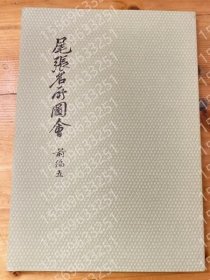 尾張名所圖會
前編五